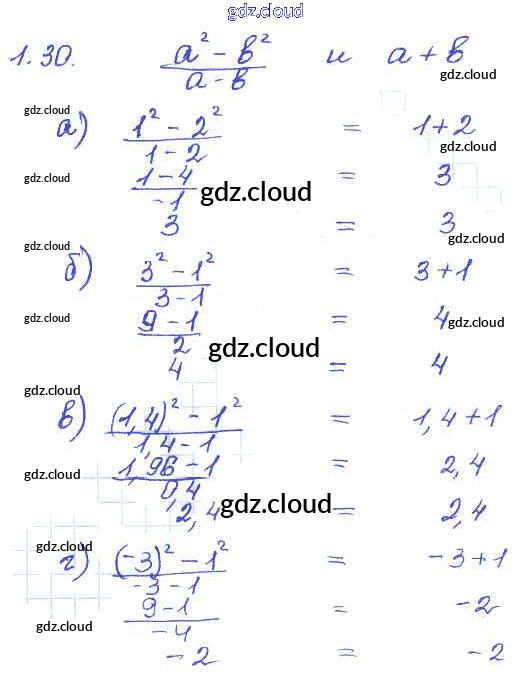 gdz.cloud
1.30. (a² - в²)/(a - в) и a + в
gdz.cloud
а) (1² - 2²)/(1 - 2) = 1 + 2
gdz.cloud
gdz.cloud
(1 - 4)/(-1) = 3
gdz.cloud
3 = 3
gdz.cloud
gdz.cloud
б) (3² - 1²)/(3 - 1) = 3 + 1
gdz.cloud
(9 - 1)/2 = 4
gdz.cloud
gdz.cloud
4 = 4
gdz.cloud
в) ((1,4)² - 1²)/(1,4 - 1) = 1,4 + 1
gdz.cloud
(1,96 - 1)/0,4 = 2,4
gdz.cloud
gdz.cloud
2,4 = 2,4
gdz.cloud
г) ((-3)² - 1²)/(-3 - 1) = -3 + 1
gdz.cloud
(9 - 1)/(-4) = -2
gdz.cloud
-2 = -2
gdz.cloud